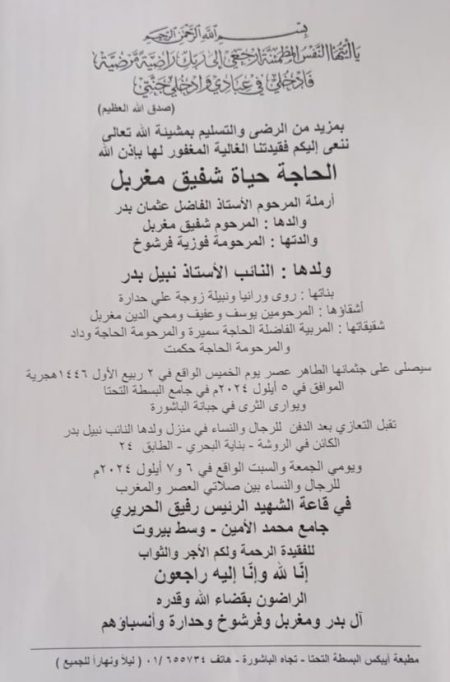 بسم الله الرحمن الرحيم
يا أيتها النفس المطمئنة ارجعي إلى ربك راضية مرضية
فادخلي في عبادي وادخلي جنتي
(صدق الله العظيم)
بمزيد من الرضى والتسليم بمشيئة الله تعالى
ننعى إليكم فقيدتنا الغالية المغفور لها بإذن الله
الحاجة حياة شفيق مغربل
أرملة المرحوم الأستاذ الفاضل عثمان بدر
والدها : المرحوم شفيق مغربل
والدتها : المرحومة فوزية فرشوخ
ولدها : النائب الأستاذ نبيل بدر
بناتها : روى ورانيا ونبيلة زوجة علي حدارة
أشقاؤها : المرحومين يوسف وعفيف ومحي الدين مغربل
شقيقاتها : المربية الفاضلة الحاجة سميرة والمرحومة الحاجة وداد
والمرحومة الحاجة حكمت
سيصلى على جثمانها الطاهر عصر يوم الخميس الواقع في ٢ ربيع الأول ١٤٤٦هجرية
الموافق في ٥ أيلول ٢٠٢٤م في جامع البسطة التحتا
ويوارى الثرى في جبانة الباشورة
تقبل التعازي بعد الدفن للرجال والنساء في منزل ولدها النائب نبيل بدر
الكائن في الروشة - بناية البحري - الطابق ٢٤
ويومي الجمعة والسبت الواقع في ٦ و٧ أيلول ٢٠٢٤م
للرجال والنساء بين صلاتي العصر والمغرب
في قاعة الشهيد الرئيس رفيق الحريري
جامع محمد الأمين - وسط بيروت
للفقيدة الرحمة ولكم الأجر والثواب
إنّا لله وإنّا إليه راجعون
الراضون بقضاء الله وقدره
آل بدر ومغربل وفرشوخ وحدارة وأنسباؤهم
مطبعة أيبكس البسطة التحتا - تجاه الباشورة - هاتف ٠١/٦٥٥٧٣٤ ( ليلاً ونهاراً للجميع )